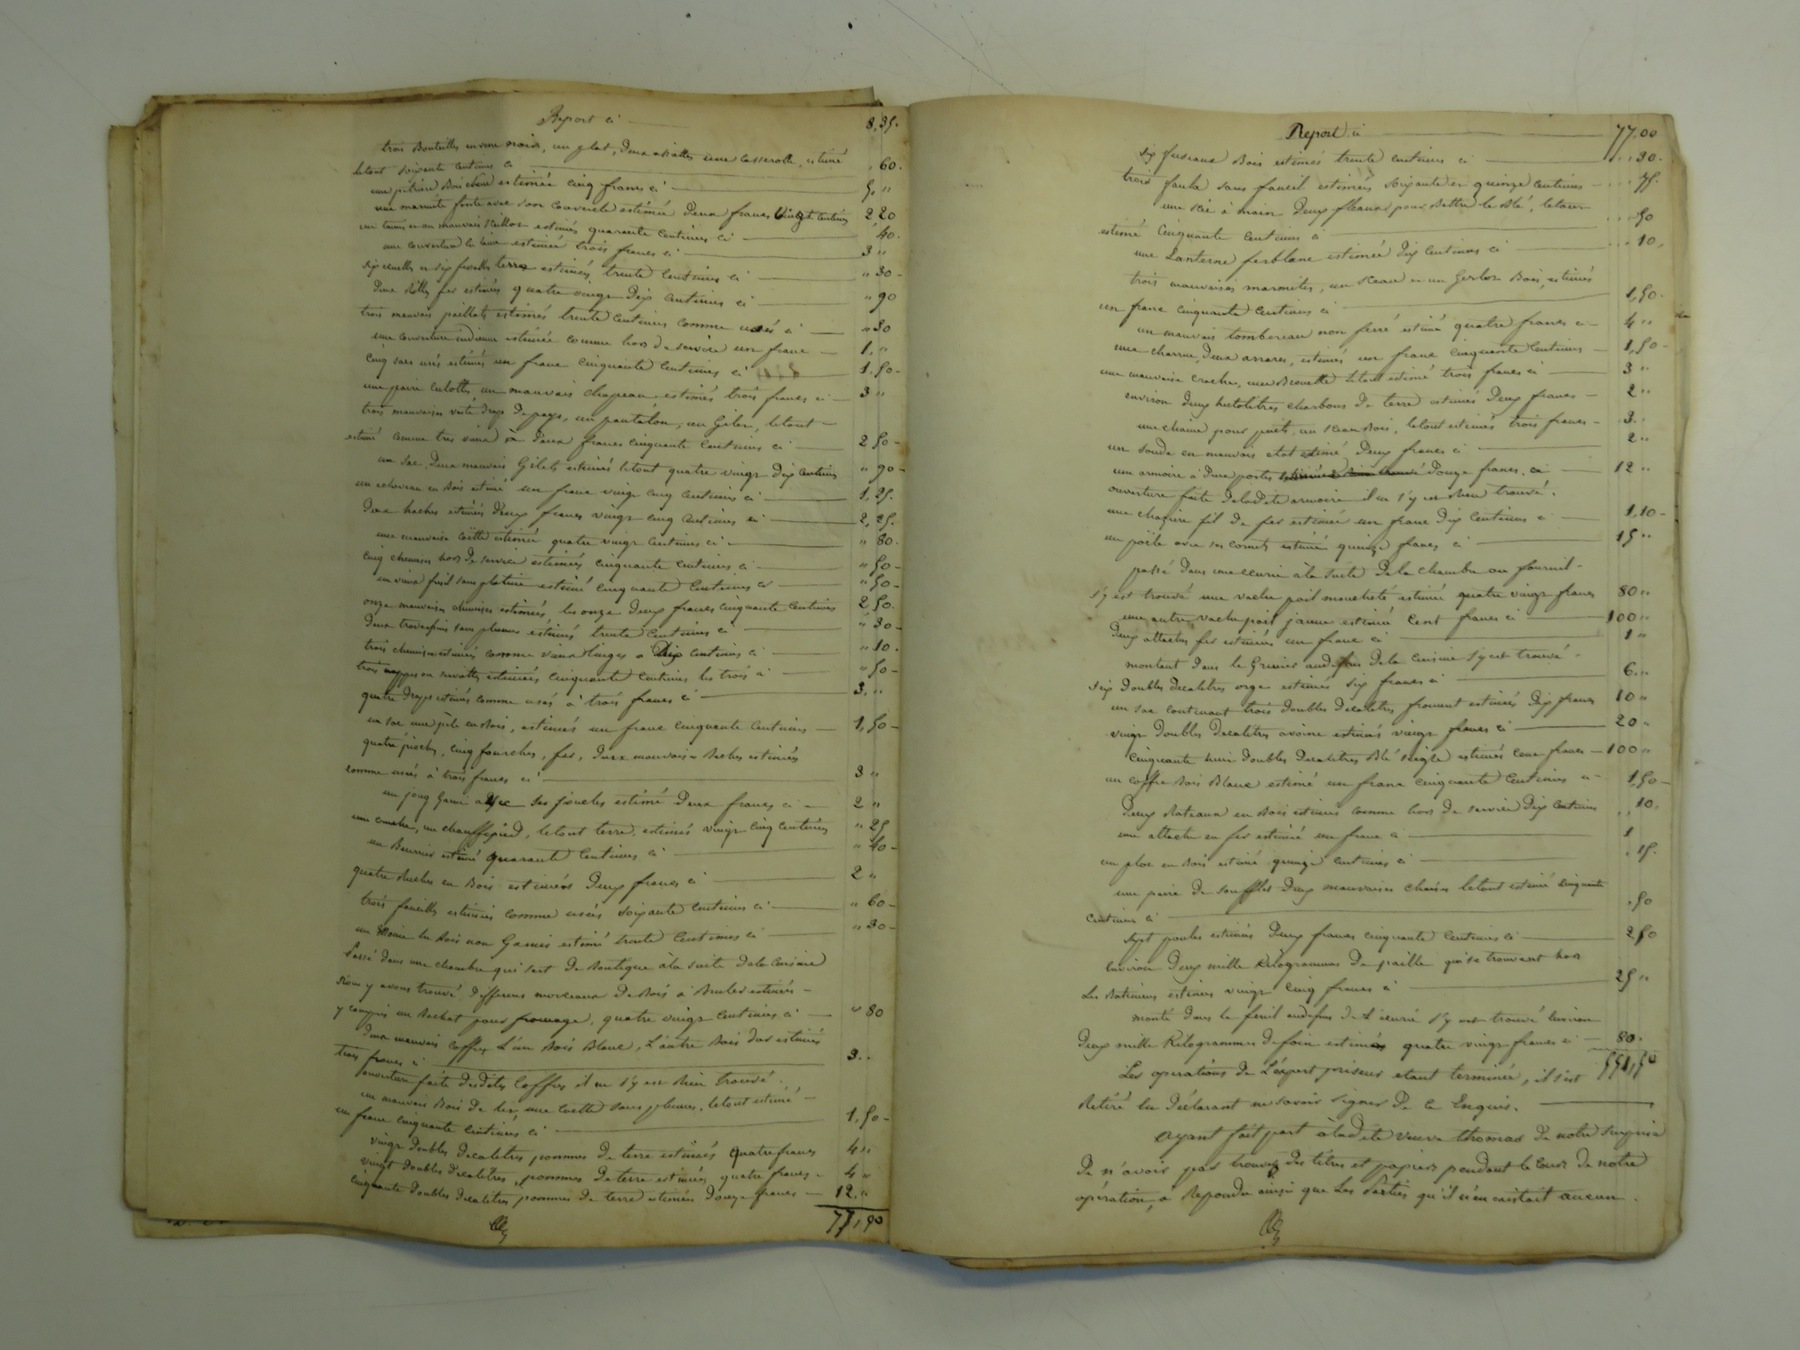 Report ci 8,35.
trois Bouteilles en verre noir, un plat, deux assiettes une Casserolle, estimé
letout soixante centimes ci ,60.
une pétrin Bois chene estimée cinq francs ci 5,"
une marmite fonte avec son couvercle estimée deux francs vingt centimes 2,20
mauvais estimés quarante centimes ci ,40.
une couverture de laine estimée trois francs ci 3 "
six ecuelles et six terre estimées trente centimes ci " 30
Deux fer estimés quatre vingt dix centimes ci " 90
trois mauvais paillats estimés trente centimes comme usés ci " 30
une couverture indienne estimée comme hors de service un franc 1, "
cinq sacs usés estimés un franc cinquante centimes ci 1.50
une paire culotte, un mauvais chapeau estimés trois francs ci 3 "
trois mauvaises veste drap de pays, un pantalon, un Gilet, letout
estimé comme tres vieux à deux francs cinquante centimes ci 2 50
un sac, deux mauvais Gilets estimés letout quatre vingt dix centimes " 90
un en bois estimé un franc vingt cinq centimes ci 1,25.
Deux haches estimées deux francs vingt cinq centimes ci 2,25.
une mauvaise estimée quatre vingt centimes ci " 80.
cinq chemises hors de service estimées cinquante centimes ci " 50
un vieux fusil sans platine estimé cinquante centimes ci " 50
onze mauvaises chemises estimées les onze deux francs cinquante centimes 2,50.
Deux traversins sans plumes estimés trente centimes ci " 30
trois chemises estimées comme vieux linges à Dix centimes ci " 10.
trois nappes ou serviettes estimées cinquante centimes les trois ci " 50
quatre draps estimés comme usés à trois francs ci 3. "
un sac une pele en bois, estimés un franc cinquante centimes 1,50
quatre pioches, cinq fourches, fer, deux mauvaises Baches estimées
comme usés à trois francs ci 3 "
un joug Garni avec ses estimé deux francs ci 2 "
une, un chauffepied, letout terre, estimés vingt cinq centimes " 25
un Beurrier estimé quarante centimes ci " 40
quatre Ruches en Bois estimées Deux francs ci 2 "
trois faucilles estimées comme usées soixante centimes ci " 60
un en bois non Garnis estimé trente centimes ci " 30
Passé dans une chambre qui sert de Boutique à la suite dela Cuisine
Nous y avons trouvé différens morceaux de Bois à Bruler estimés
y compris un Bachat pour fromage, quatre vingt centimes ci " 80
Deux mauvais coffres L'un Bois Blanc, L'autre Bois dur estimés
trois francs ci 3. "
ouverture faite desdits Coffres il ne s'y est Rien trouvé.
un mauvais Bois de lit, une Coette sans plumes, letout estimé
un franc cinquante centimes ci 1,50
vingt doubles decalitres pommes de terre estimées quatre francs 4 "
vingt doubles decalitres, pommes de terre estimées quatre francs 4 "
cinquante doubles decalitres pommes de terre estimées douze francs 12. "
77,90
Report ci 77.00
six fuseaux Bois estimés trente centimes ci 30.
trois faulx sans estimées soixante et quinze centimes 75.
une scie à main Deux fleaux pour Battre le Blé, letout
estimé cinquante centimes ci 50
une Lanterne ferblanc estimée dix centimes ci 10.
trois mauvaises marmites, un seau et un Bois, estimés
un franc cinquante centimes ci 1,50.
un mauvais tombereau non ferré estimé quatre francs ci 4 "
une charrue, deux arrares, estimés un franc cinquante centimes 1,50
une mauvaise, une Brouette letout estimé trois francs ci 3 "
environ deux hectolitres charbons de terre estimés Deux francs 2 "
une chaine pour puits, un seau Bois, letout estimés trois francs 3.
un en mauvais etat estimé Deux francs ci 2 "
une armoire à deux portes Douze francs, ci 12 "
ouverture faite deladite armoire il ne s'y est Rien trouvé.
une fil de fer estimée un franc dix centimes ci 1,10
un poele avec ses cornets estimé quinze francs ci 15 "
passé dans une ecurie à la suite de la chambre ou fournil
s'y est trouvé une vache poil estimée quatre vingt francs 80 "
une autre vache poil jaune estimée Cent francs ci 100 "
Deux attaches fer estimées un franc ci 1 "
montant dans le Grenier audessus dela cuisine s'y est trouvé
six doubles decalitres orge estimés six francs ci 6 "
un sac contenant trois doubles decalitres froment estimés Dix francs 10 "
vingt doubles decalitres avoine estimés vingt francs ci 20 "
cinquante huit doubles decalitres Blé seigle estimés cent francs 100 "
un coffre Bois Blanc estimé un franc cinquante centimes ci 1,50
Deux Rateaux en Bois estimés comme hors de service Dix centimes 10.
une attache en fer estimée un franc ci 1
un en bois estimé quinze centimes ci .15.
une paire de soufflets Deux mauvaises chaises letout estimé cinquante
centimes ci .50
sept poules estimées Deux francs cinquante centimes ci 2 50
Environ deux mille Kilogrammes de paille qui se trouvent hors
Les Batimens estimés vingt cinq francs ci 25 "
monté dans le fenil audessus de L'ecurie s'y est trouvé Environ
Deux mille Kilogrammes de foin estimés quatre vingt francs ci 80.
Les opérations de L'expert priseur etant terminée, il s'est 551,50
Retiré lui Déclarant ne savoir signer De ce Enquis.
ayant fait part à ladite veuve thomas de notre surprise
De n'avoir pas trouvés des titres et papiers pendant le cours de notre
opération, a Repondu ainsi que Les parties qu'il n'en existait aucun.